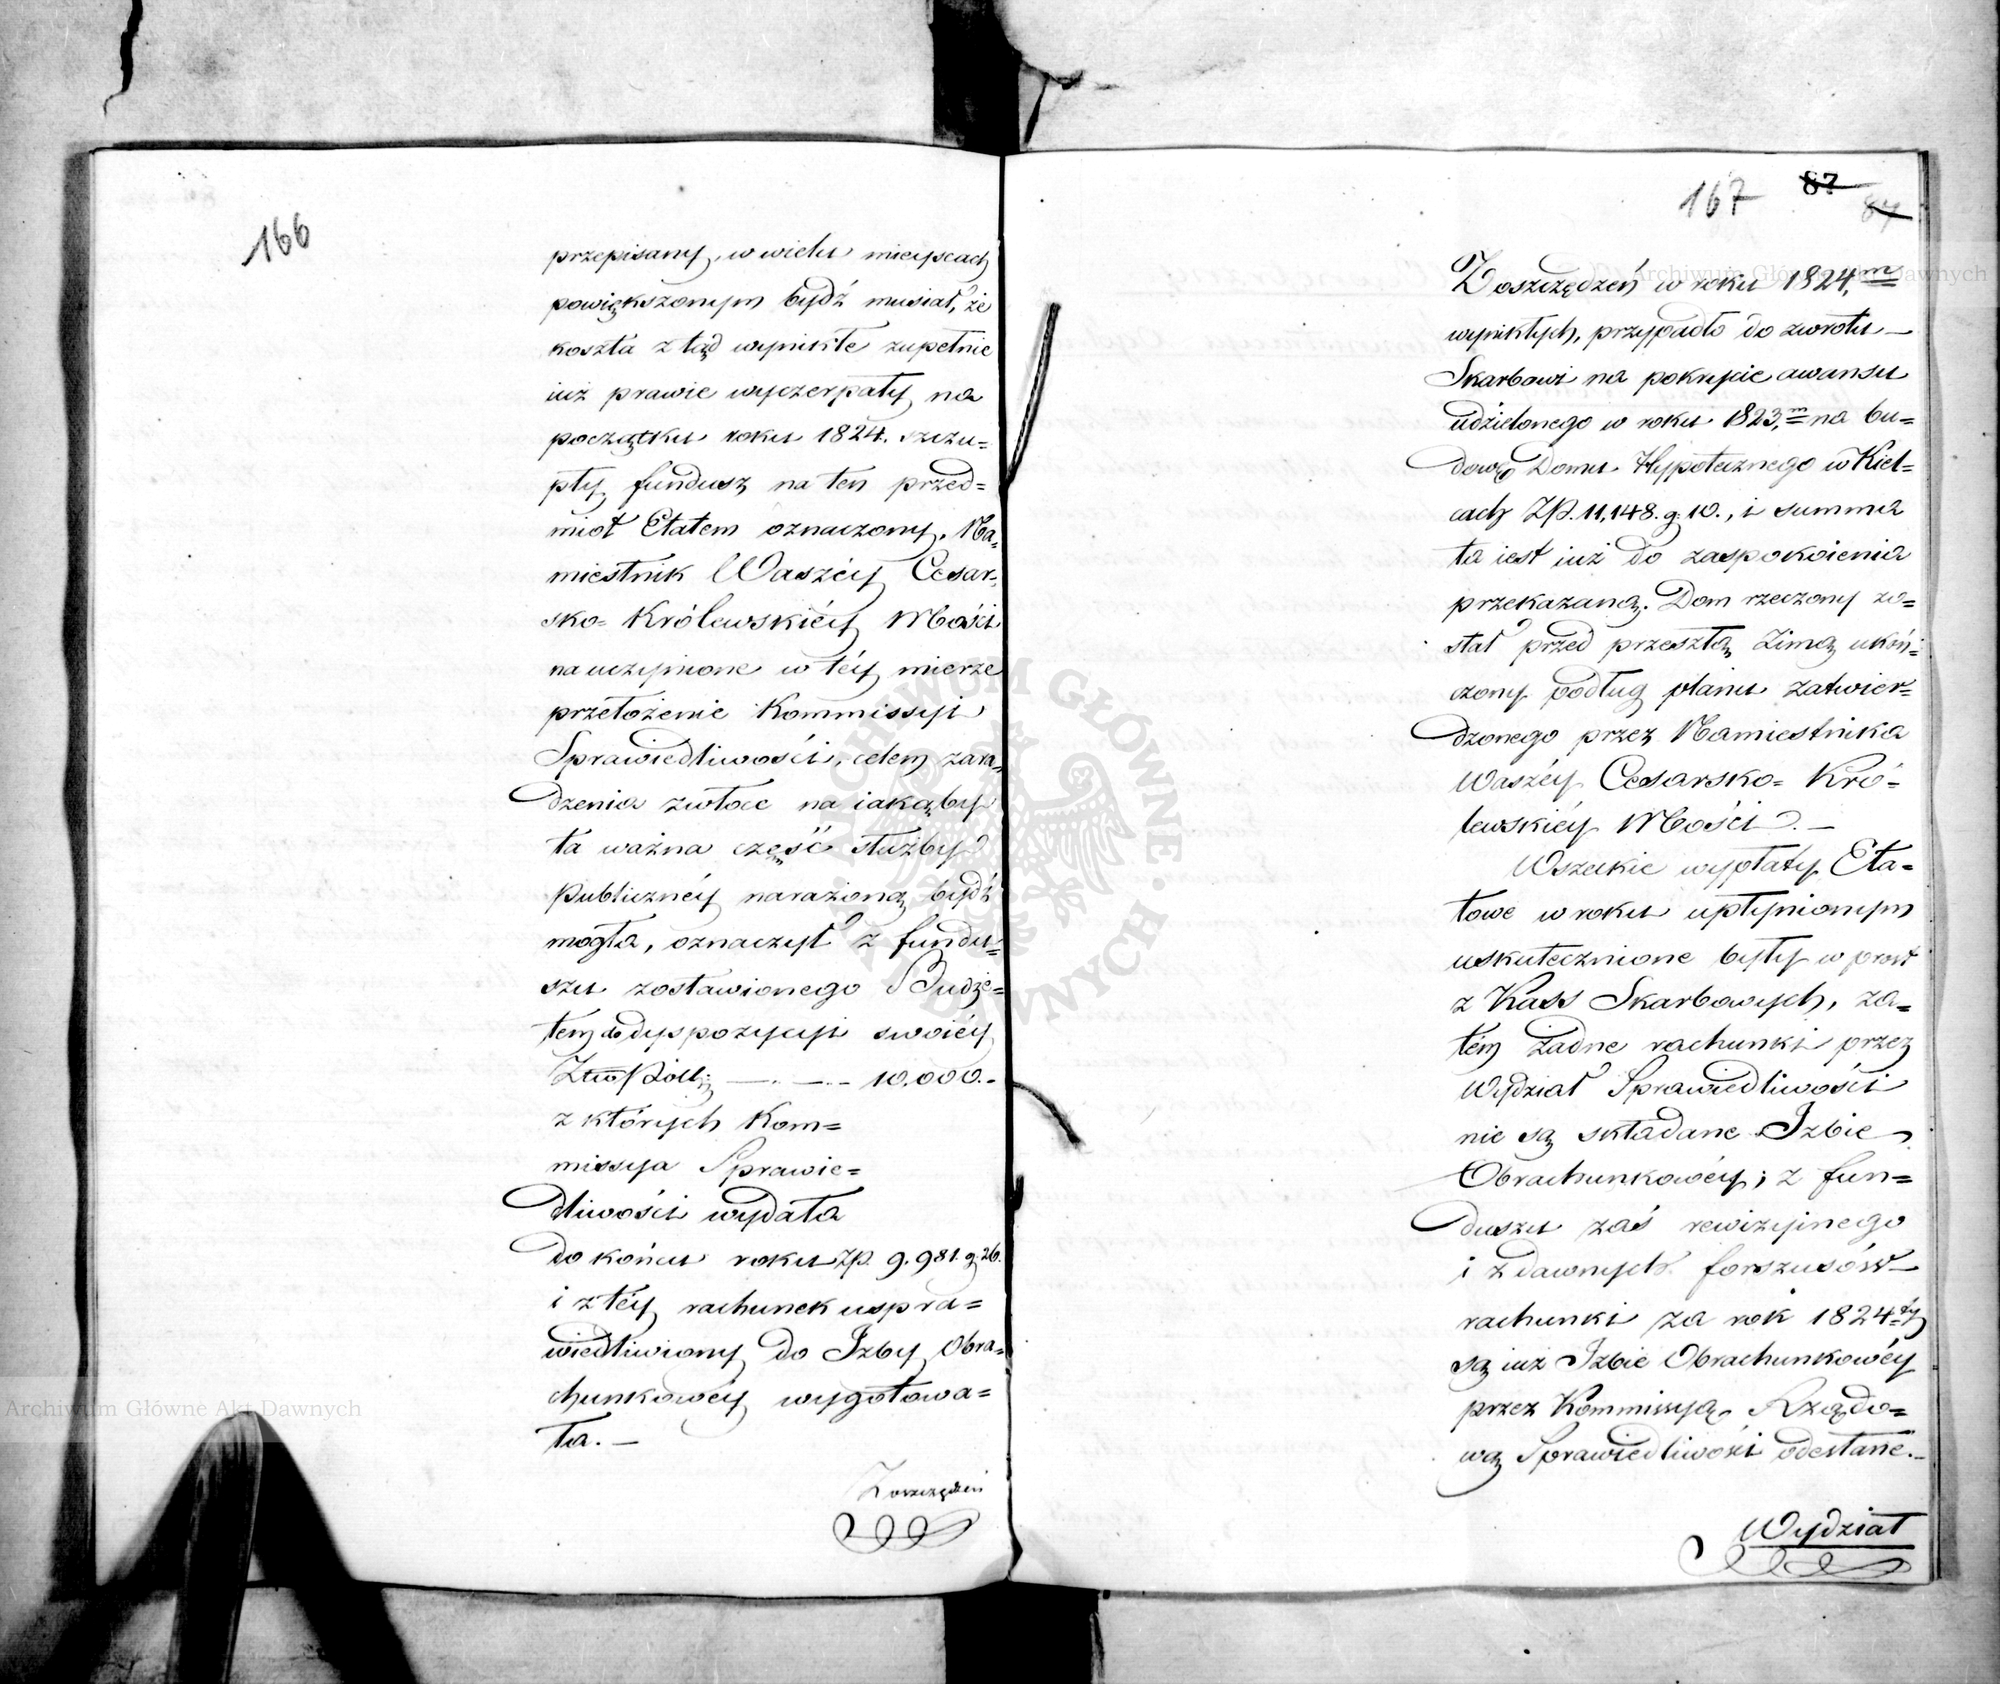 166
przepisany, w wielu mieyscach
powiększonym bydź musiał, że
koszta ztąd wynikłe zupełnie
iuż prawie wyczerpały na
początku roku 1824. szczu=
pły fundusz na ten przed=
miot Etatem oznaczony. Na=
miestnik Waszéy Cesar=
sko= Królewskiéy Mości
na uczynione w téy mierze
przełożenie Kommissyi
Sprawiedliwości, celem zara=
dzenia zwłoce na iakąby
ta ważna część służby
publicznéy narażoną bydź
mogła, oznaczył z fundu=
szu zostawionego Budże=
tem do dyspozycyi swoiéy
Złto Pols: — . — . - 10,000.=
z których Kom=
missya Sprawie=
dliwości wydała
do końca roku Zp. 9.981. g. 26.
i z téy rachunek uspra=
wiedliwiony do Izby Obra=
chunkowéy wygotowa=
ła. —
Z oszczędzeń
167 87
87
Z oszczędzeń w roku 1824,m
wynikłych, przypadło do zwrotu —
Skarbowi na pokrycie awansu
udzielonego w roku 1823,m na bu=
dowę Domu Hypotecznego w Kiel=
cach Zp. 11,148. g. 10., i summa
ta iest iuż do zaspokoienia
przekazaną. Dom rzeczony zo=
stał przed przeszłą Zimą ukoń=
czony podług planu zatwier=
dzonego przez Namiestnika
Waszéy Cesarsko= Kró=
lewskiéy Mości. —
Wszelkie wypłaty Eta=
towe w roku upłynionym
uskutecznione były w prost
z Kass Skarbowych, za=
tém żadne rachunki przez
Wydział Sprawiedliwości
nie są składane Izbie
Obrachunkowéy; z fun=
duszu zaś rewizyinego
i z dawnych forszusów —
rachunki za rok 1824ty
są iuż Izbie Obrachunkowéy
przez Kommissyą Rządo=
wą Sprawiedliwości odesłane. —
Wydział
Archiwum Główne Akt Dawnych
Archiwum Główne Akt Dawnych
ARCHIWUM GŁÓWNE AKT DAWNYCH